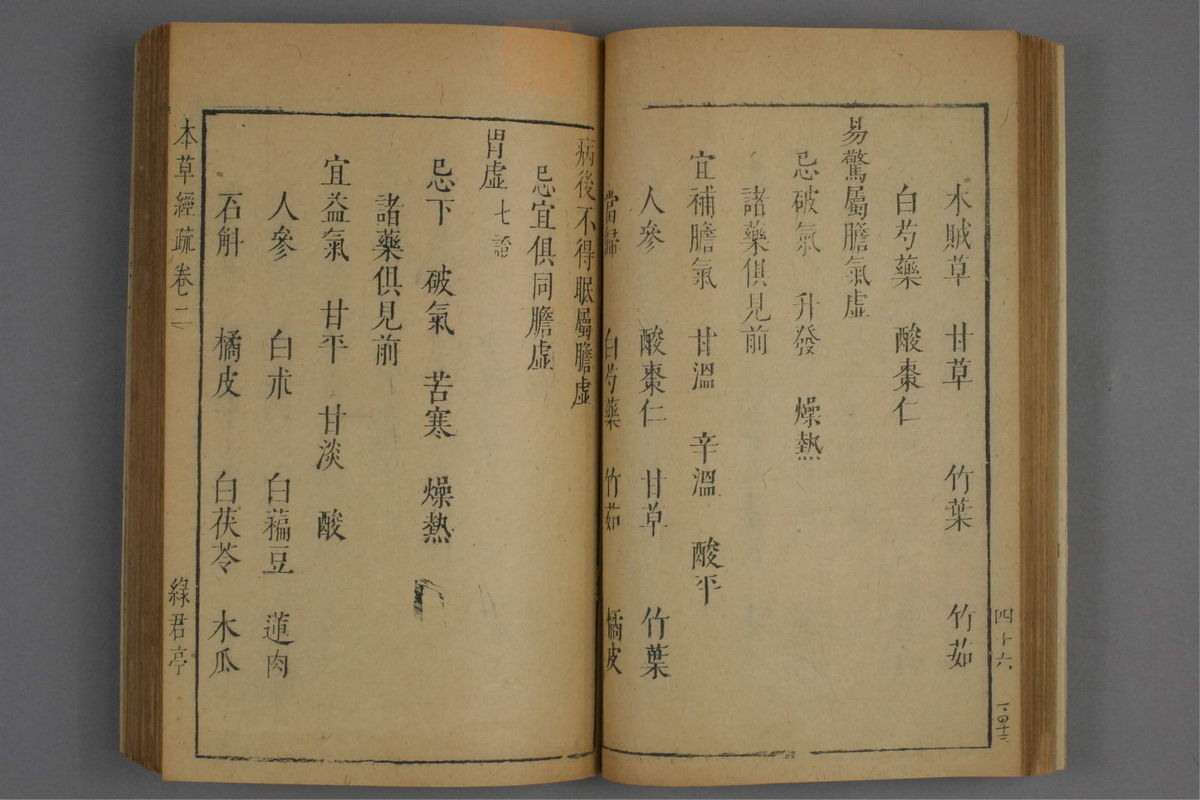 木賊草 甘草 竹葉 竹茹
白芍藥 酸棗仁
易驚屬膽氣虛
忌破氣 升發 燥熱
諸藥俱見前
宜補膽氣 甘溫 辛溫 酸平
人參 酸棗仁 甘草 竹葉
當歸 白芍藥 竹茹 橘皮
四十六
病後不得眠屬膽虛
忌宜俱同膽虛
胃虛 七證
忌下 破氣 苦寒 燥熱
諸藥俱見前
宜益氣 甘平 甘淡 酸
人參 白朮 白藊豆 蓮肉
石斛 橘皮 白茯苓 木瓜
本草經疏卷二
綠君亭